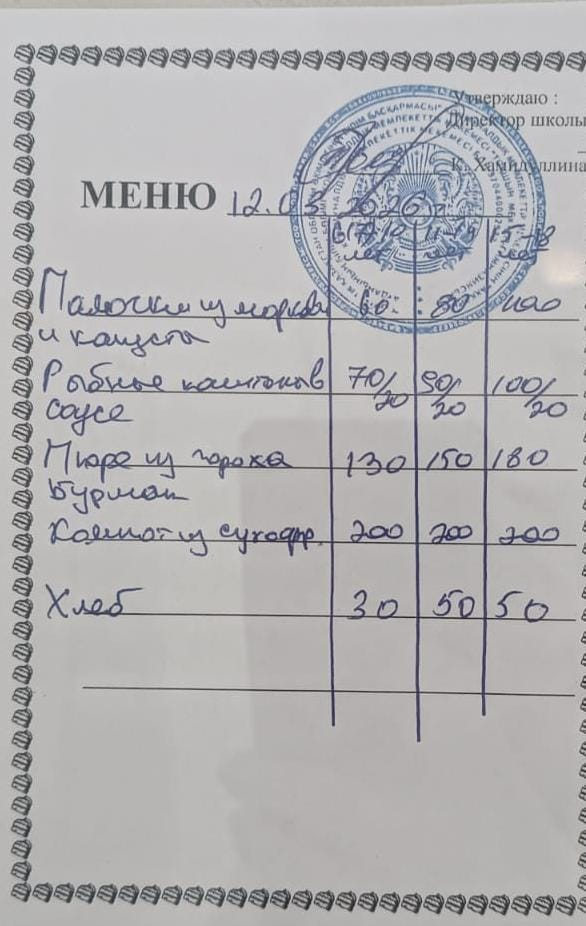 Утверждаю :
Директор школы
К. Хамидуллина
МЕНЮ 12.03.2026 г.
6(7)-10 11-14 15-18
лет лет лет
Палочки из моркови 60 80 100
и капусты
Рыбные в 70/20 90/20 100/20
соусе
Пюре из гороха 130 150 180
Бурмак
Компот из сухофр. 200 200 200
Хлеб 30 50 50